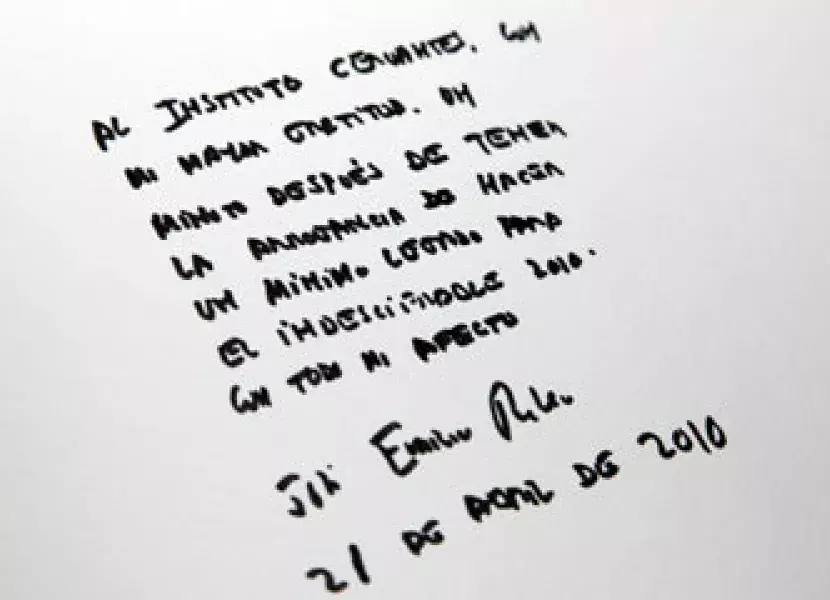 AL INSTITUTO CERVANTES, CON
MI MAYOR GRATITUD, UN
MINUTO DESPUÉS DE TENER
LA ARROGANCIA DE HACER
UN MÍNIMO LEGADO PARA
EL INDESCIFRABLE 2110.
CON TODO MI AFECTO
José Emilio
21 DE ABRIL DE 2010